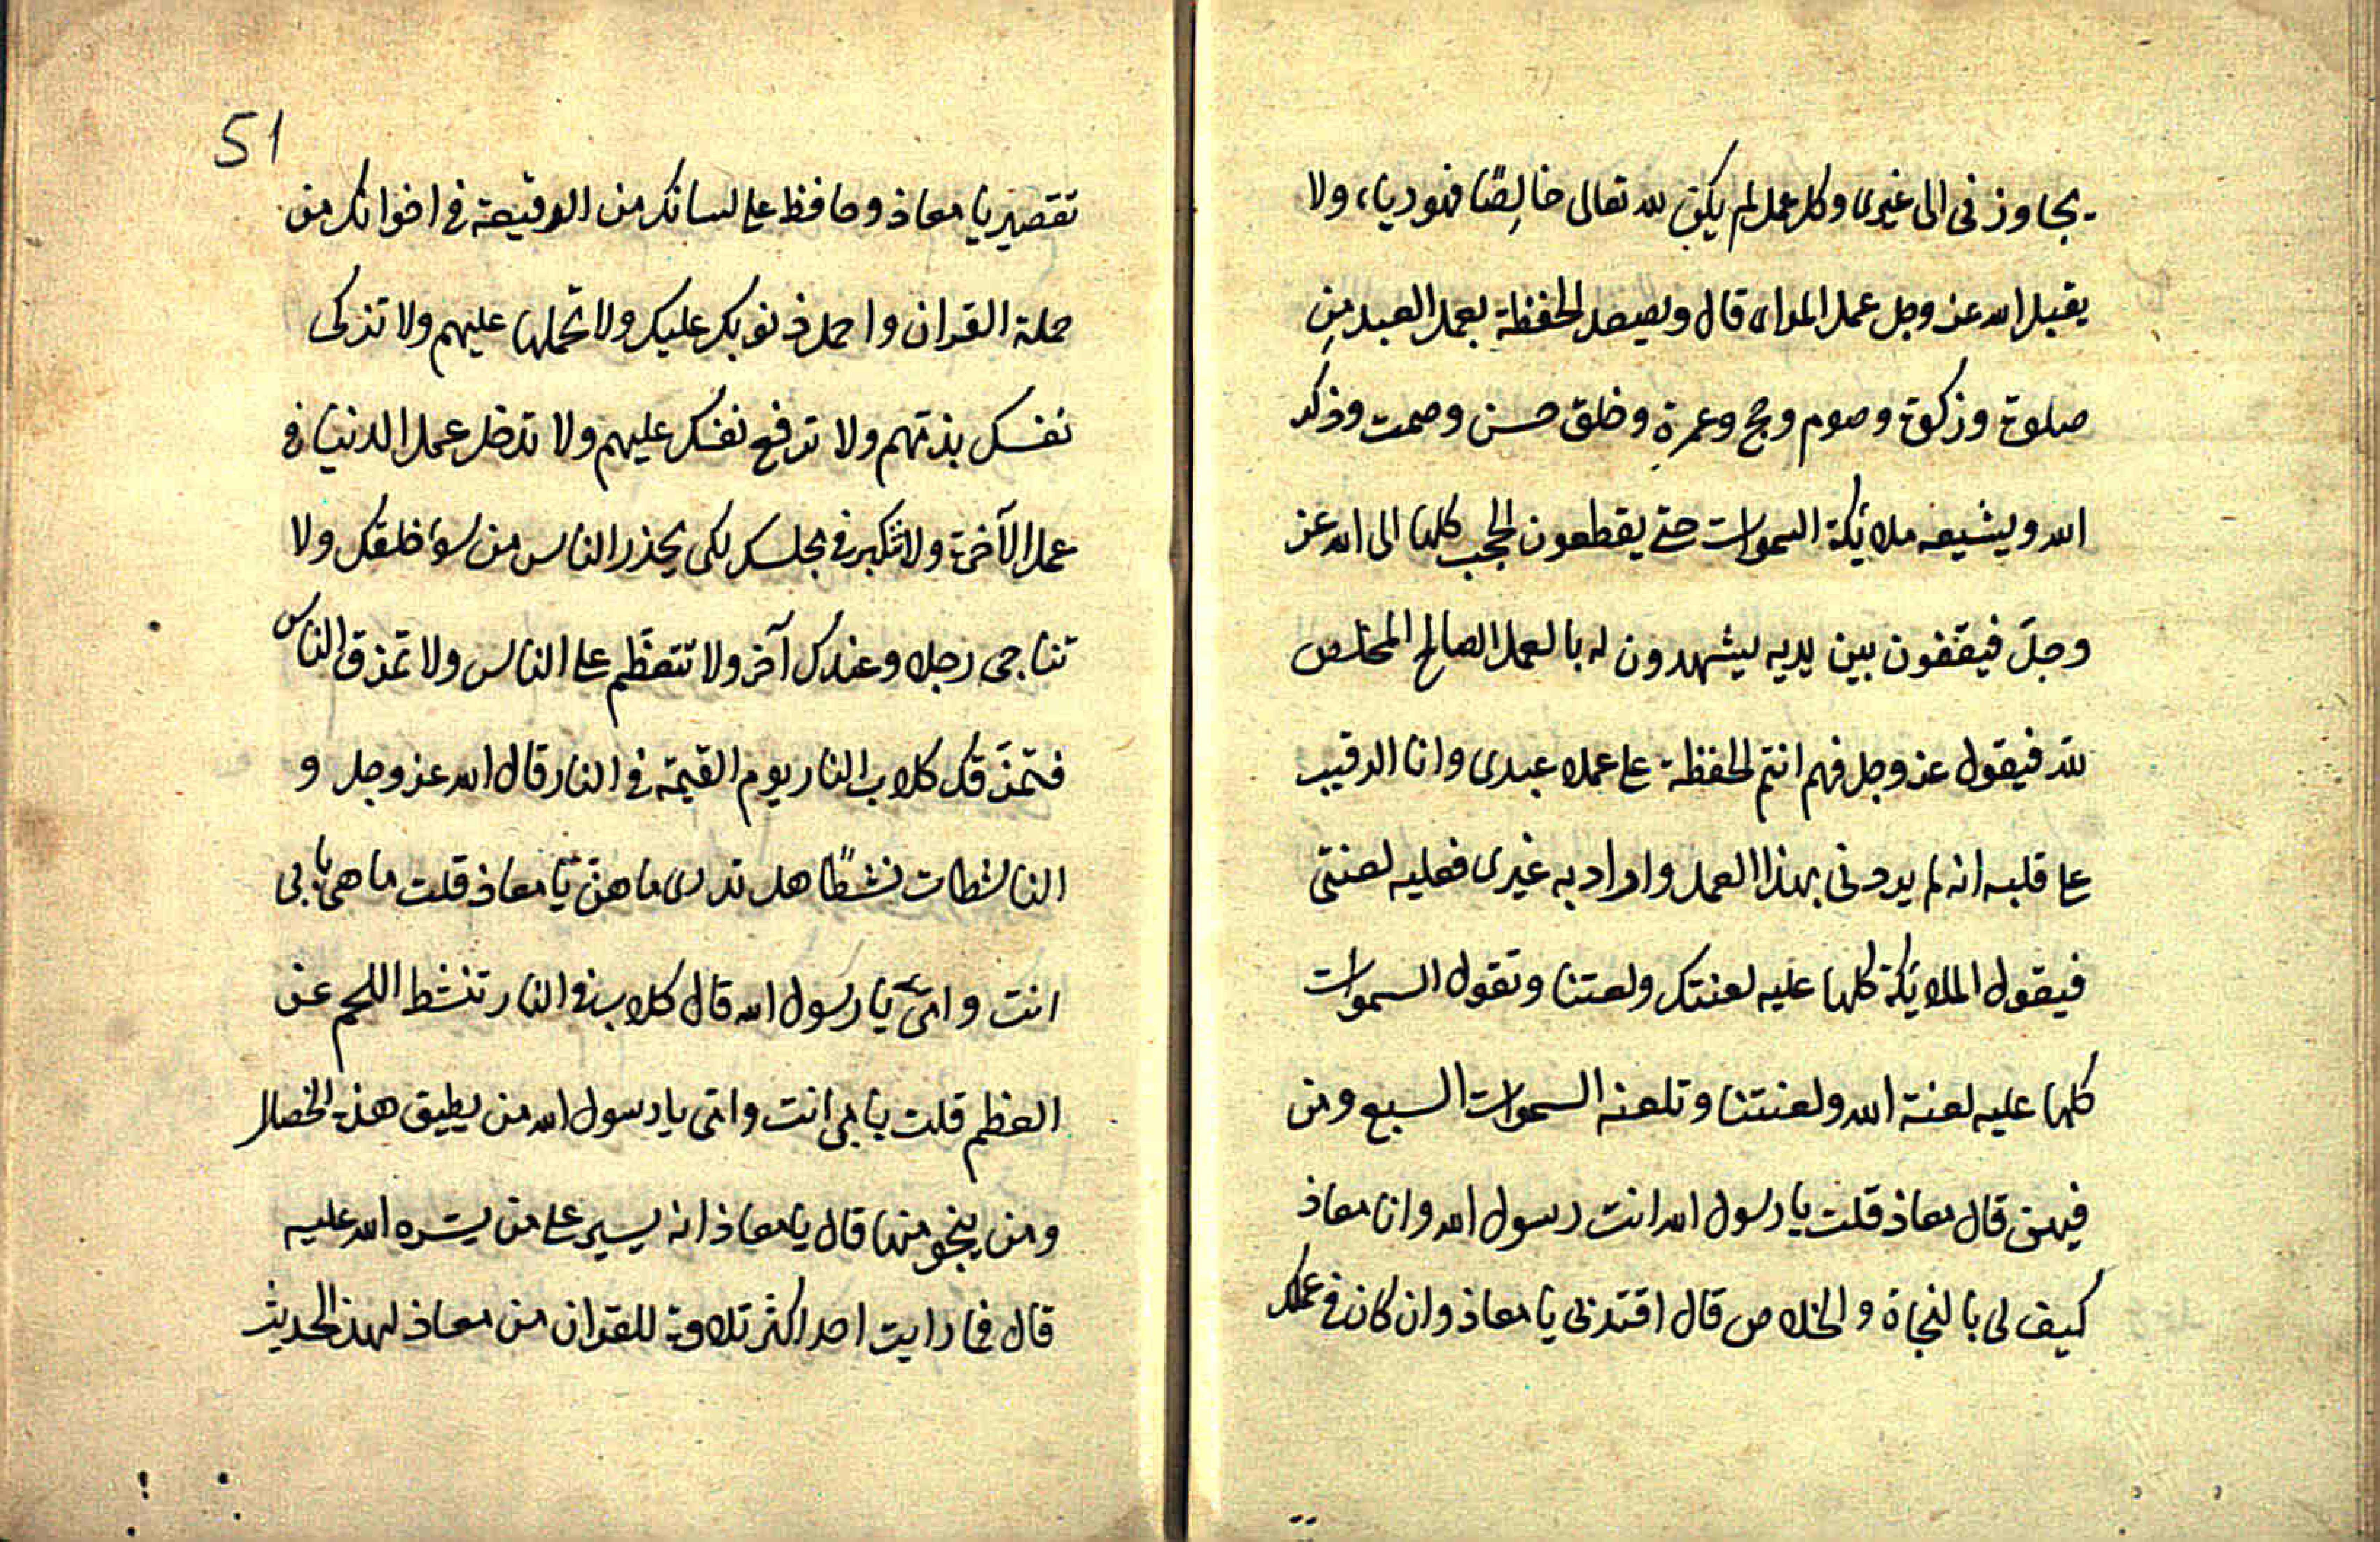 يجاوزنى الى غيرى وكل عمل لم يكن لله تعالى خالِصًا فهو رياء ولا
يقبل الله عز وجل عمل المراى قال ويصعد الحفظة بعمل العبد مِن
صلوة وزكوة وصوم وحج وعمرةٍ وخلق حسن وصمت وذكر
الله ويشيعه ملائكة السموات حتى يقطعون الحجب كلها الى الله عز
وجلّ فيقفون بين يديه يشهدون له بالعمل الصالح المخلص
لله فيقول عز وجل فهم انتم الحفظة على عمل عبدى وانا الرقيب
على قلبه انه لم يردنى بهذا العمل واراد به غيرى فعليه لعنتى
فيقول الملائكة كلها عليه لعنتك ولعنتنا وتقول السموات
كلها عليه لعنة الله ولعنتنا وتلعنه السموات السبع ومن
فيهن قال معاذ قلت يا رسول الله انت رسول الله وانا معاذ
كيف لى بالنجاة والخلاص قال اقتد بى يا معاذ وان كان فى عملك
51
تقصير يا معاذ وحافظ على لسانك من الوقيعة فى اخوانك من
حملة القران واحمل ذنوبك عليك ولا تحملها عليهم ولا تزكى
نفسك بذمّهم ولا ترفع نفسك عليهم ولا تدخل عمل الدنيا فى
عمل الآخرة ولا تتكبر فى مجلسك لكى يحذر الناس من سوء خلقك ولا
تناجى رجلا وعندك آخر ولا تتعظّم على الناس ولا تمزق الناس
فتمزّقك كلاب النار يوم القيمة فى النار قال الله عز وجل و
الناشطات نشطًا هل تدرى ما هنّ يا معاذ قلت ما هى بابى
انت وامّى يا رسول الله قال كلاب فى النار تنشط اللحم عن
العظم قلت بابى انت وامّى يا رسول الله من يطيق هذه الخصال
ومن ينجو منها قال يا معاذ انه يسير على من يسّره الله عليه
قال فما رايت احد اكثر تلاوة للقران من معاذ لهذا الحديث